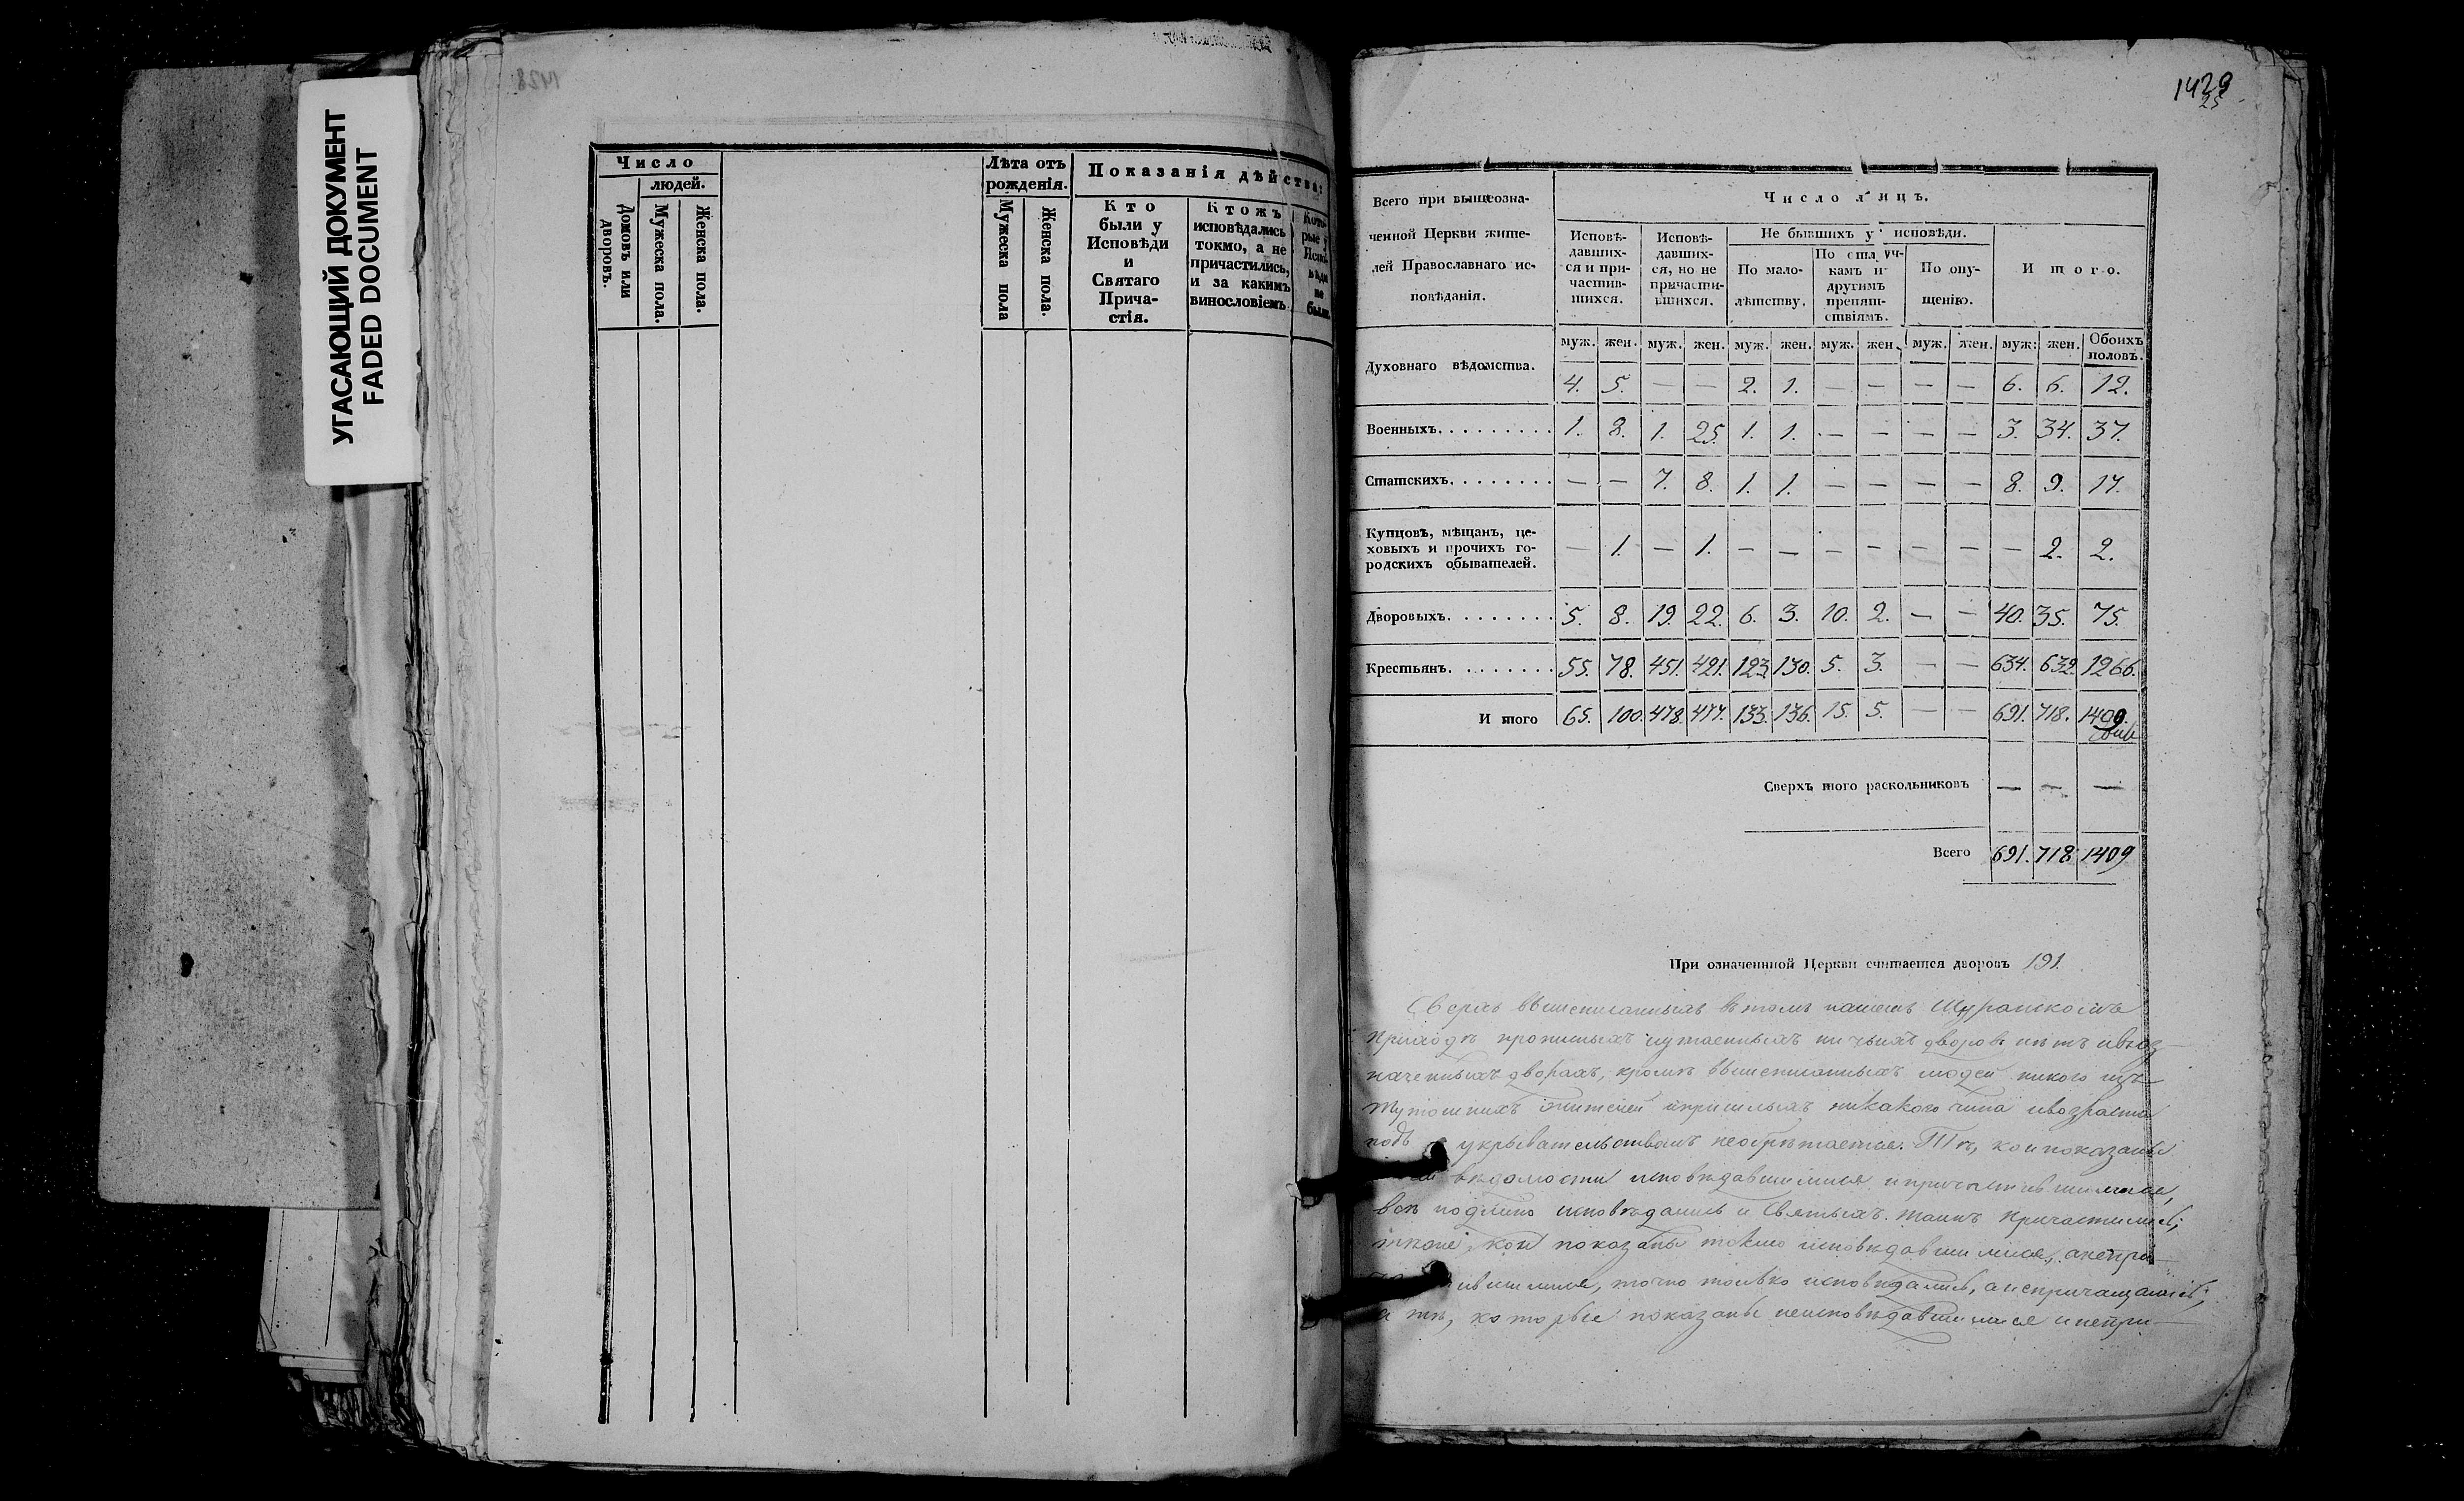 УГАСАЮЩИЙ ДОКУМЕНТ
FADED DOCUMENT
1428
Число
людей.
Домовъ или дворовъ.
Мужеска пола.
Женска пола.
Лѣта отъ рожденія.
Мужеска пола
Женска пола.
Показанія дѣйства:
Кто
были у
Исповѣди
и
Святаго
Прича-
стія.
Ктожъ
исповѣдались
токмо, а не
причастились,
и за какимъ
винословіемъ
Кото-
рые у
Испо-
вѣди
не
были.
1429
25
Всего при вышеозна-
ченной Церкви жите-
лей Православнаго ис-
повѣданія.
Число лицъ.
Исповѣ-
давших-
ся и при-
частив-
шихся.
Исповѣ-
давших-
ся, но не
причасти-
вшихся.
Не бывшихъ у исповѣди.
По мало-
лѣтству.
По отлуч-
камъ и
другимъ
препят-
ствіямъ.
По опу-
щенію.
Итого.
муж. жен. муж. жен. муж. жен. муж. жен. муж. жен. муж: жен. Обоихъ половъ.
Духовнаго вѣдомства. 4. 5. — — 2. 1. — — — — 6. 6. 12.
Военныхъ. 1. 8. 1. 25. 1. 1. — — — — 3. 34. 37.
Статскихъ. — — 7. 8. 1. 1. — — — — 8. 9. 17.
Купцовъ, мѣщанъ, це-
ховыхъ и прочихъ го-
родскихъ обывателей. — 1. — 1. — — — — — — — 2. 2.
Дворовыхъ. 5. 8. 19. 22. 6. 3. 10. 2. — — 40. 35. 75.
Крестьянъ. 55. 78. 451. 421. 123. 130. 5. 3. — — 634. 632. 1266.
Итого 65. 100. 478. 477. 133. 136. 15. 5. — — 691. 718. 1409.
Сверхъ того раскольниковъ — — —
Всего 691. 718. 1409
При означеннной Церкви считается дворовъ 191.
Сверхъ вышеписанныхъ въ томъ нашемъ
приходѣ прописныхъ и утаенныхъ ничьихъ дворовъ нѣтъ и въоз-
наченныхъ дворахъ, кромѣ вышеписанныхъ людей никого изъ
тутошнихъ жителей и пришлыхъ никакого чина и возраста
подъ укрывательствомъ необрѣтается. Тѣ, кои показаны
вѣдомости исповѣдавшимися и причастившимися,
всѣ подлино исповѣдались и Святыхъ Таинъ причастились;
кои показаны токмо исповѣдавшимися, анепри-
ившимися, точно только исповѣдались, а непричащались;
а тѣ, которые показаны неисповѣдавшимися и непри-